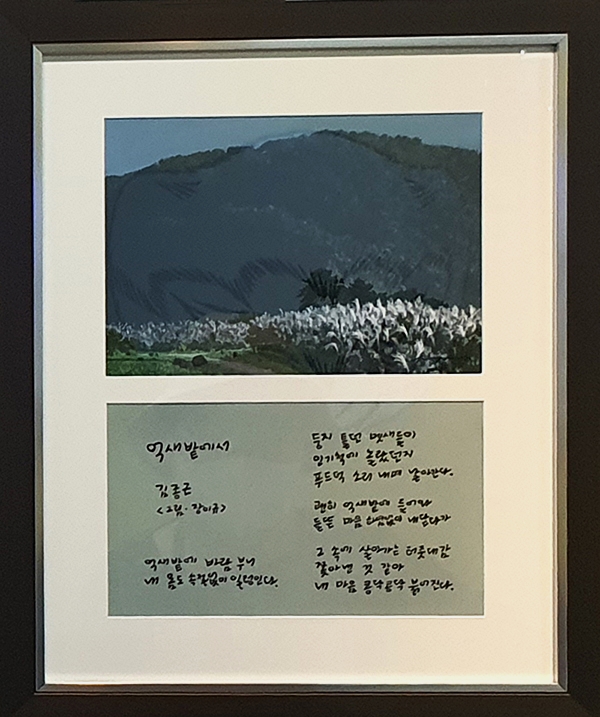 억새밭에서
김종근
<그림·장이규>
억새밭에 바람 부니
내 몸도 속절없이 일렁인다.
둥지 틀던 멧새들이
인기척에 놀랐던지
푸드덕 소리 내며 날아간다.
괜히 억새밭에 들어와
들뜬 마음 내달리다가
그 속에 살아가는 터줏대감
쫓아낸 것 같아
내 마음 콩닥콩닥 붉어진다.